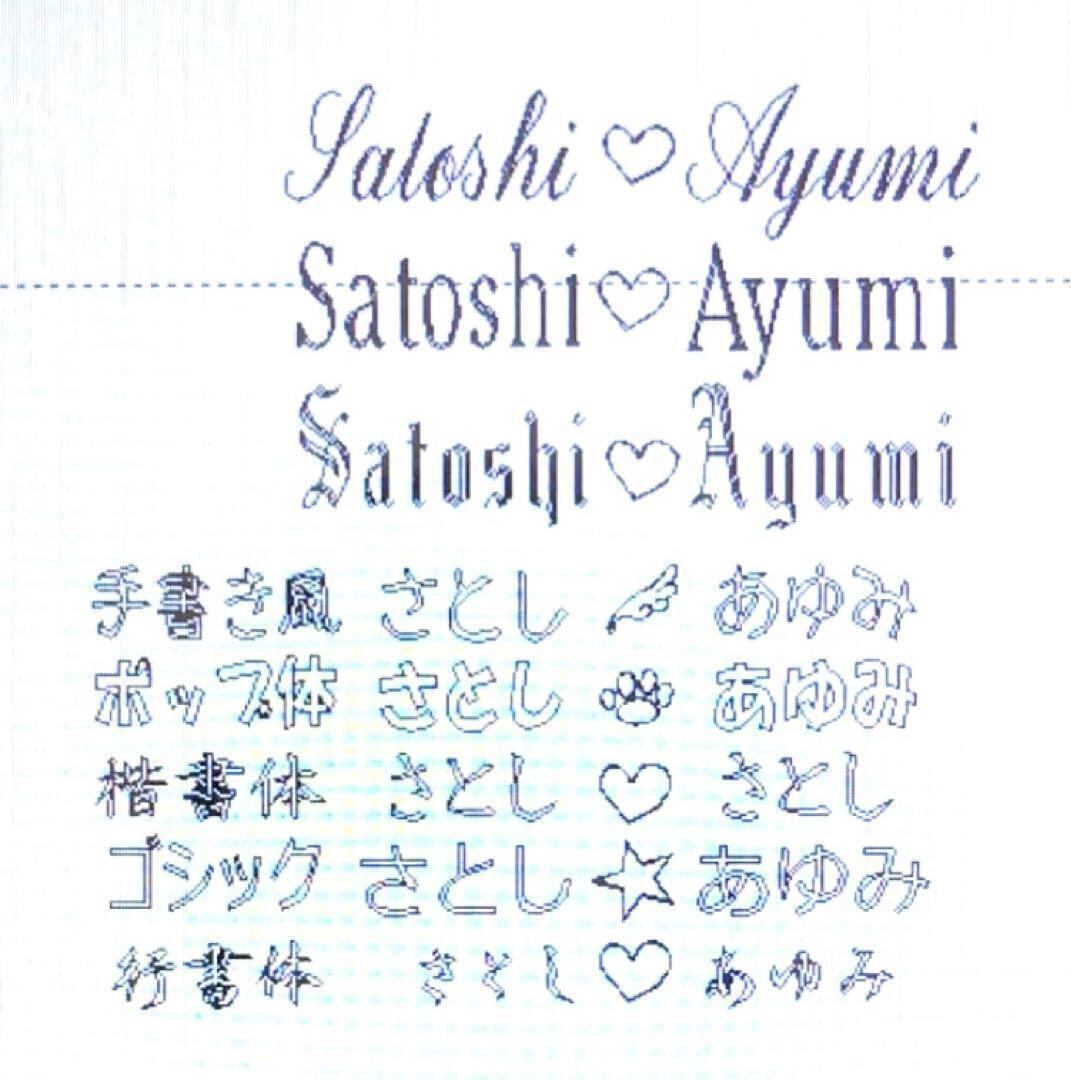 Satoshi ♡ Ayumi
Satoshi ♡ Ayumi
Satoshi ♡ Ayumi
手書き風 さとし あゆみ
ポップ体 さとし あゆみ
楷書体 さとし ♡ さとし
ゴシック さとし ☆ あゆみ
行書体 さとし ♡ あゆみ